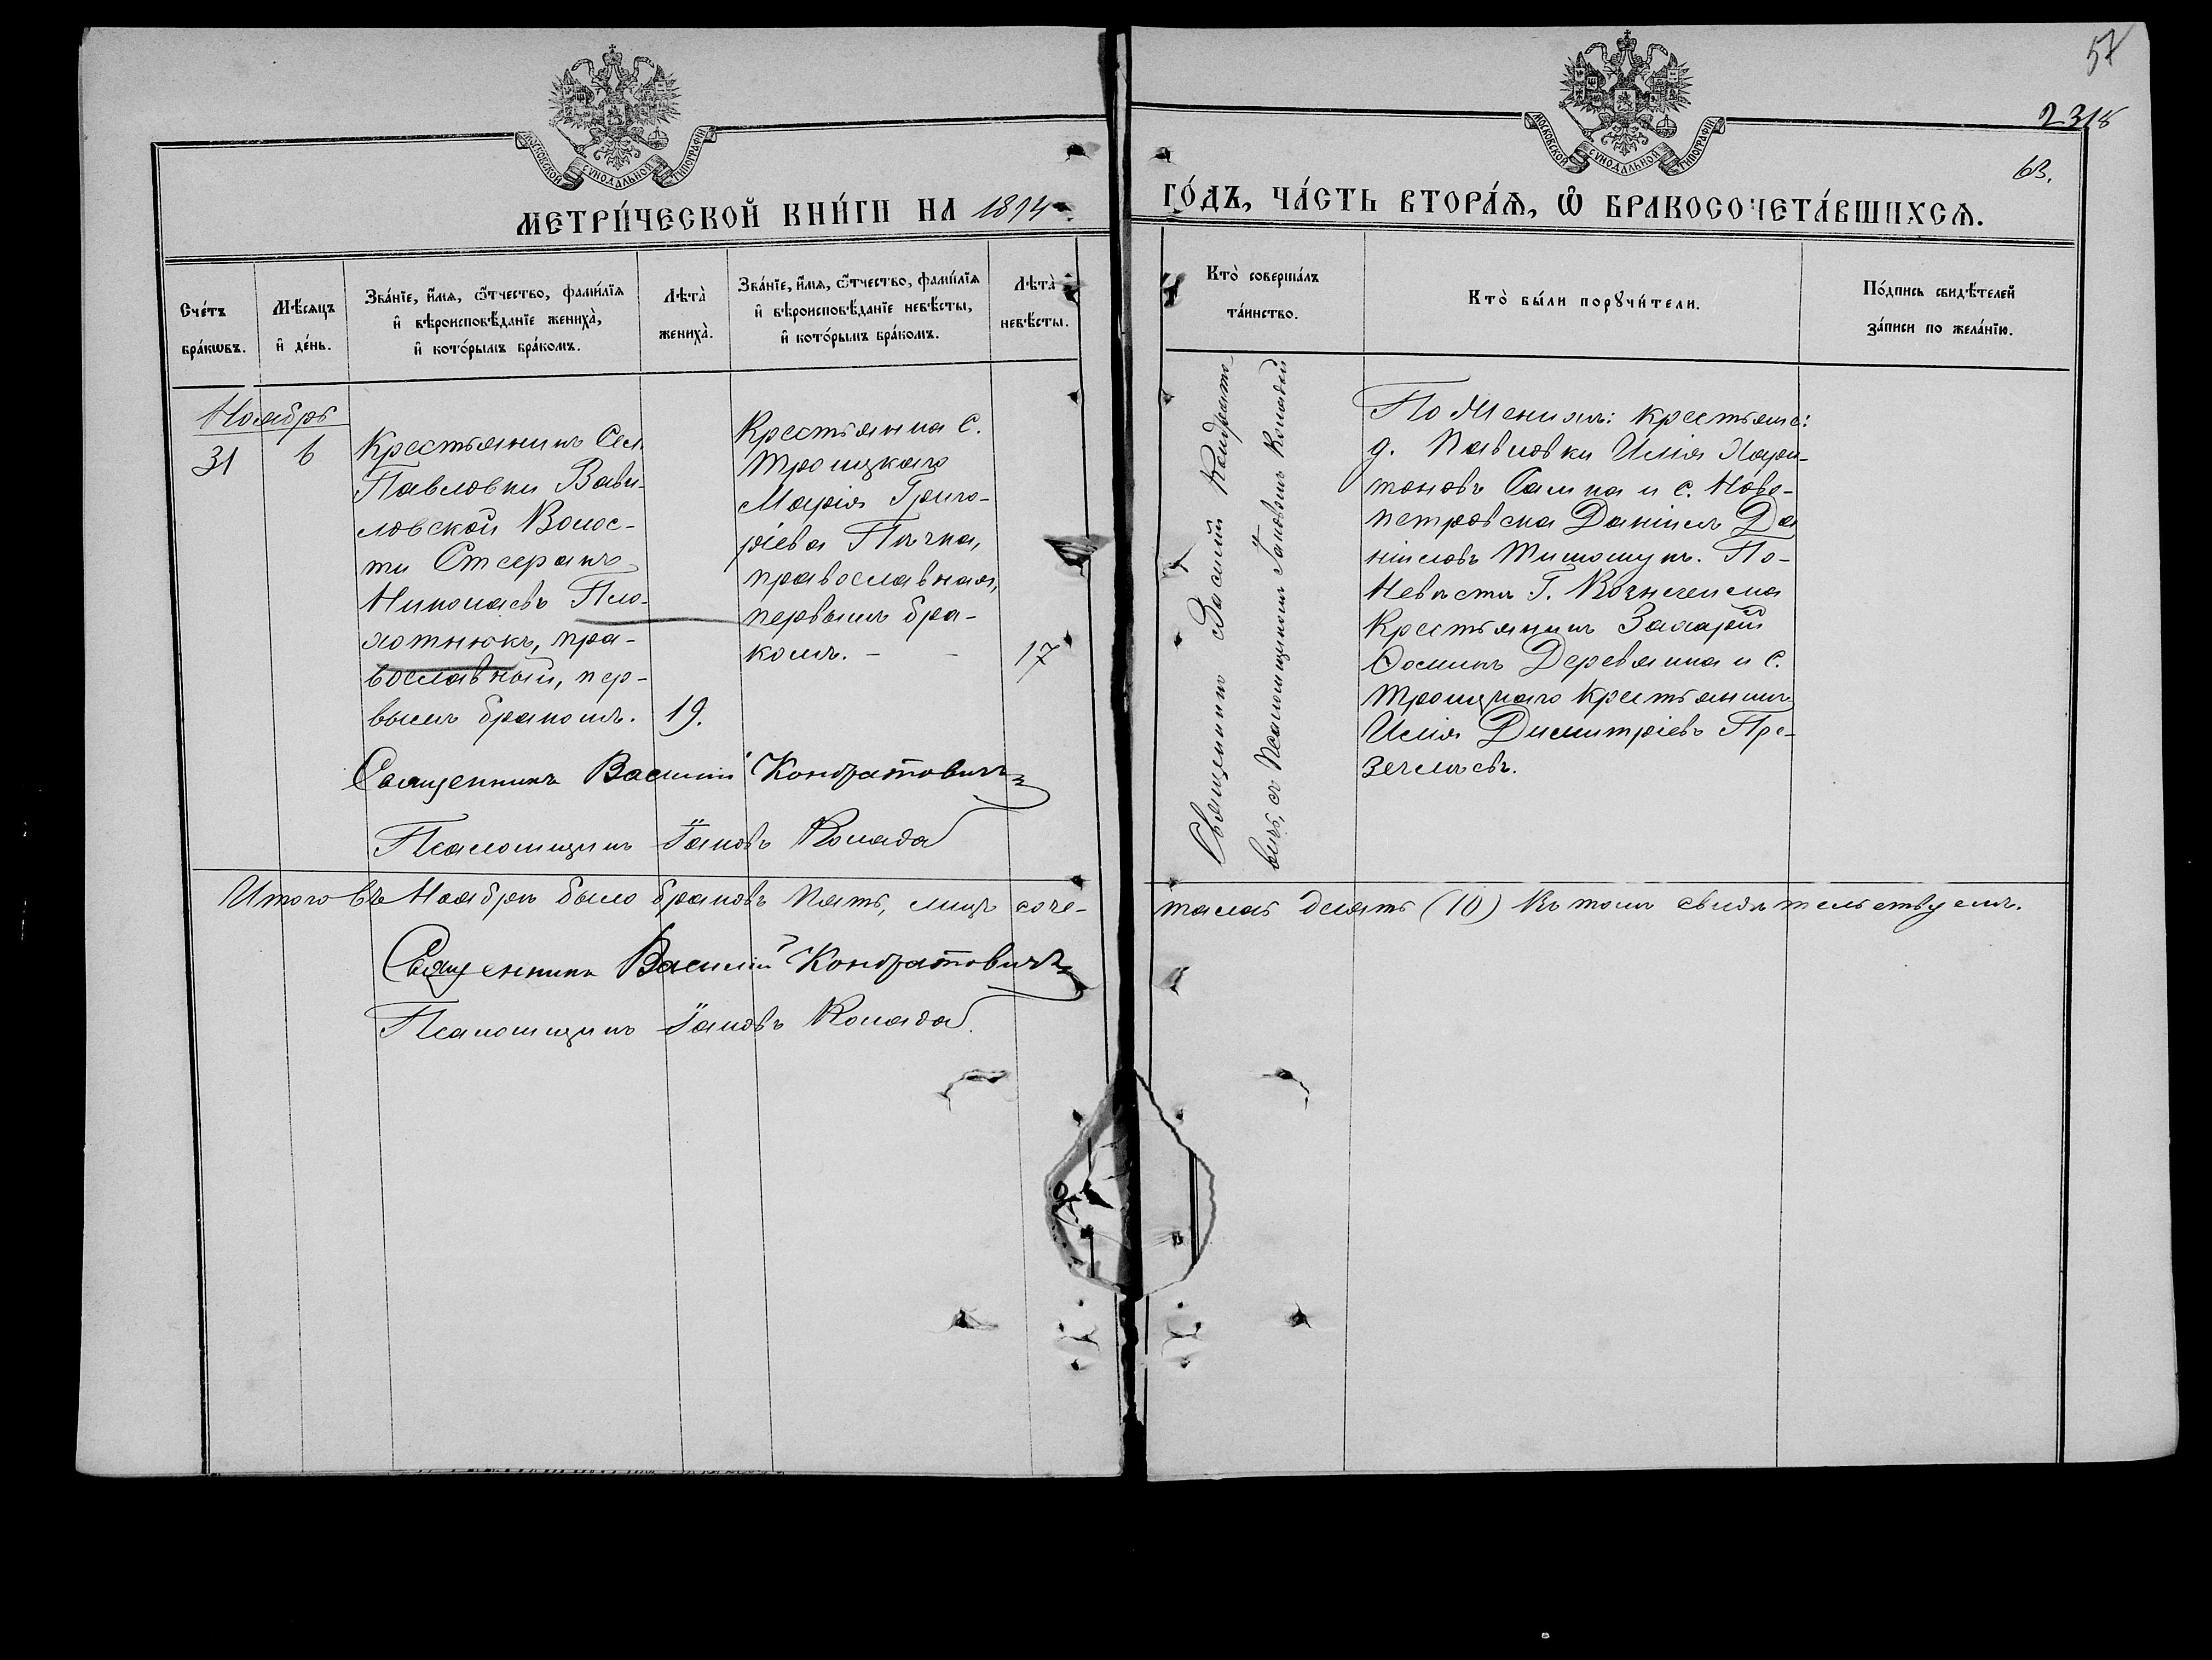 57
2318
63.
МОСКОВСКОЙ СѴНОДАЛЬНОЙ ТИПОГРАФІИ
МОСКОВСКОЙ СѴНОДАЛЬНОЙ ТИПОГРАФІИ
МЕТРИ́ЧЕСКОЙ КНИ́ГИ НА 1894
ГО́ДЪ, ЧА́СТЬ ВТОРА́Я, Ѡ БРАКОСОЧЕТА́ВШИХСЯ.
Сче́тъ бра́кωвъ.
Мѣ́сяцъ и де́нь.
Зва́нїе, и́мя, ѻ́тчество, фами́лїя
и вѣроисповѣ́данїе жениха̀,
и кото́рымъ бра́комъ.
Лѣта̀ жениха̀.
Зва́нїе, и́мя, ѻ́тчество, фами́лїя
и вѣроисповѣ́данїе невѣ́сты,
и кото́рымъ бра́комъ.
Лѣта̀ невѣ́сты.
Кто̀ соверша́лъ
та́инство.
Кто̀ бы́ли порꙋчи́тели.
По́дпись свидѣ́телей
за́писи по жела́нїю.
Ноябрь
31
6
Крестьянинъ Сел.
Павловки Вави-
ловской Волос-
ти Стефанъ
Николаевъ Пло-
хотнюкъ, пра-
вославный, пер-
вымъ бракомъ.
19.
Крестьянка С.
Троицкаго
Марія Григо-
ріева Пычка,
православная,
первымъ бра-
комъ. - -
17
Священникъ Василій Кондрато
вичъ, съ Псаломщикомъ Іаковомъ Колядой
По Женихѣ: крестьяне:
д. Павловки Илія Хари-
тоновъ Салка и с. Ново-
петровска Даніилъ Да
ніиловъ Тимощукъ. По-
Невѣстѣ Г. Вознесенска
Крестьянинъ Захарій
Ѳоминъ Деревянка и с.
Троицкаго крестьянинъ
Илія Димитріевъ
Священникъ Василій Кондратовичъ
Псаломщикъ Іаковъ Коляда
Итого въ Ноябрѣ было браковъ пять, лицъ соче-
талось десять (10) Въ томъ свидѣтельствуемъ.
Священникъ Василій Кондратовичъ
Псаломщикъ Іаковъ Коляда.